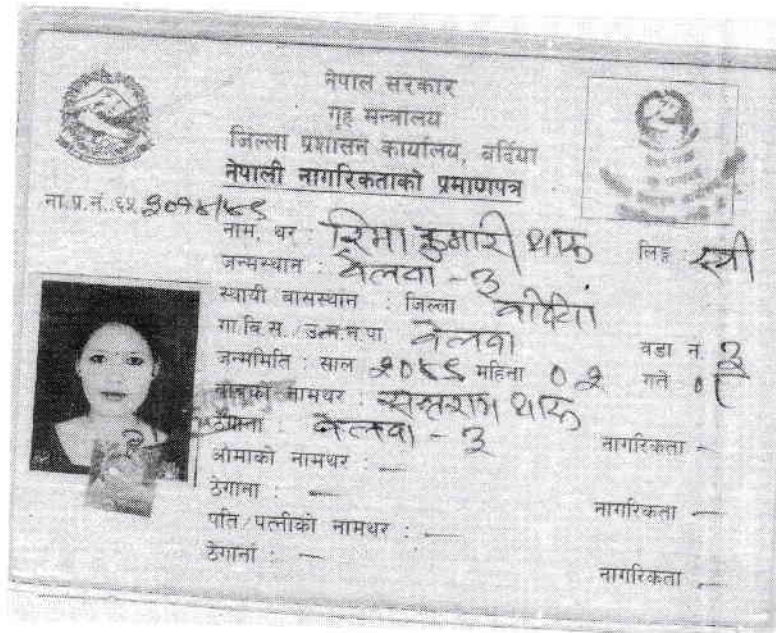 नेपाल सरकार
गृह मन्त्रालय
जिल्ला प्रशासन कार्यालय, बर्दिया
नेपाली नागरिकताको प्रमाणपत्र
ना.प्र.नं.
नाम, थर : रिमा कुमारी थारू लिङ्ग : स्त्री
जन्मस्थान : बेलवा - ३
स्थायी बासस्थान : जिल्ला बर्दिया
गा.वि.स./उ.म.न.पा. बेलवा वडा नं. ३
जन्ममिति : साल महिना ०२ गते
बाबुको नामथर : थारू
ठेगाना : बेलवा - ३ नागरिकता -
आमाको नामथर : —
ठेगाना : — नागरिकता —
पति/पत्नीको नामथर : —
ठेगाना : — नागरिकता —